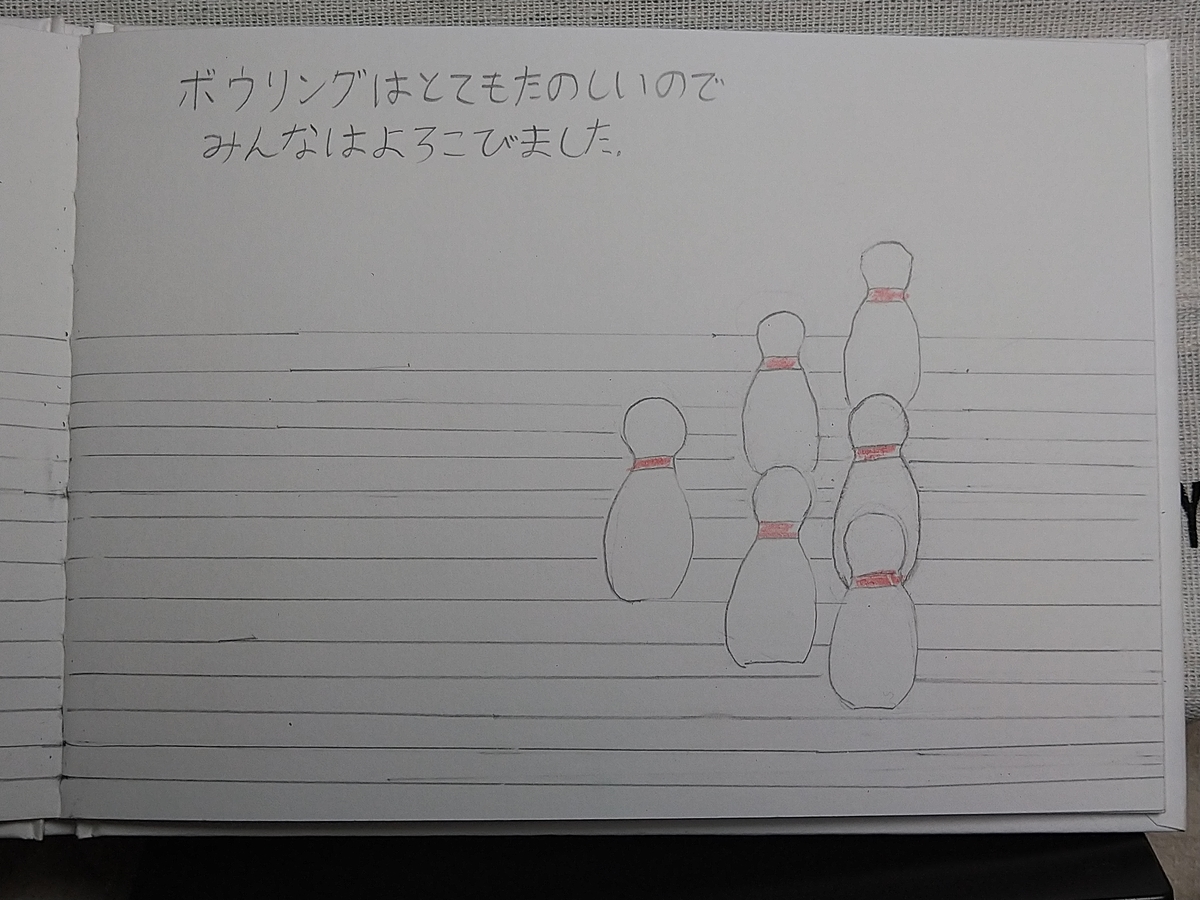 ボウリングはとてもたのしいので
みんなはよろこびました。